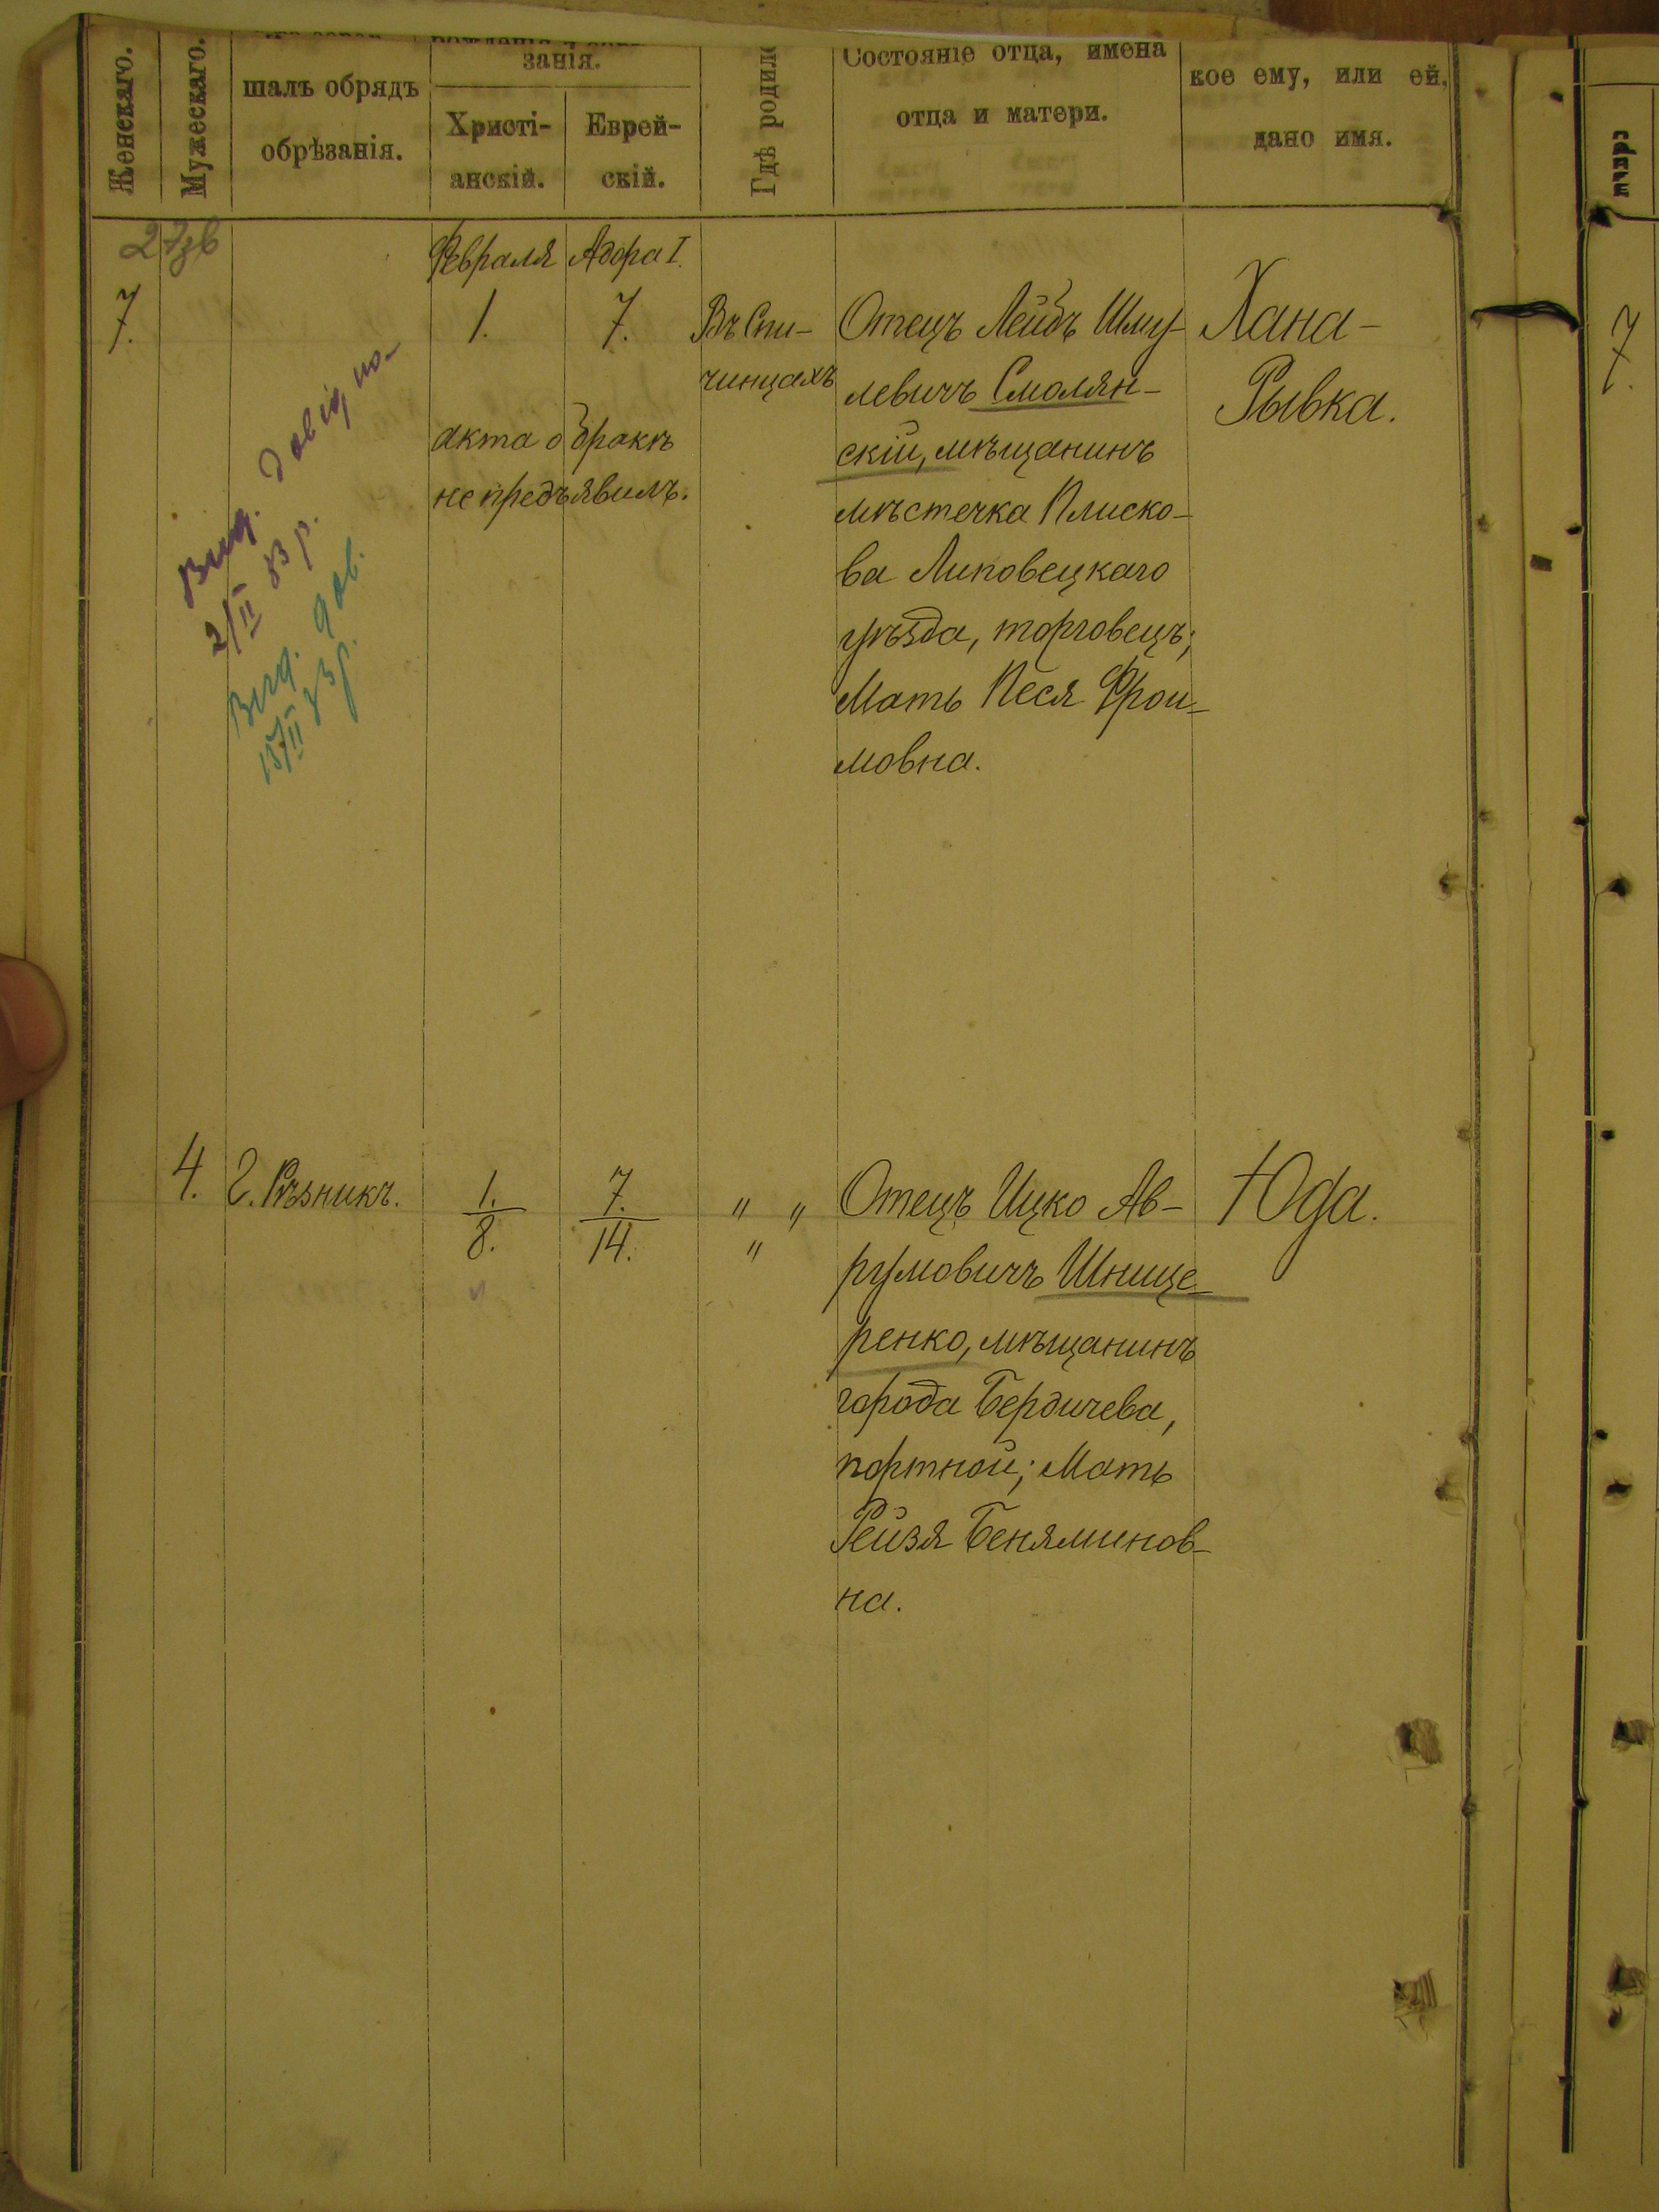 Женскаго.
Мужескаго.
шалъ обрядъ
обрѣзанія.
занія.
Христі-
анскій.
Еврей-
скій.
Гдѣ родил
Состояніе отца, имена
отца и матери.
кое ему, или ей,
дано имя.
Февраля Адара I.
7.
1.
7.
Въ Спи-
чинцахъ
Отецъ Лейбъ Шму-
левичъ Смолян-
скій, мѣщанинъ
мѣстечка Плиско-
ва Липовецкаго
уѣзда, торговецъ;
Мать Песя Фрои-
мовна.
Хана-
Рывка.
акта о бракѣ
не предъявилъ.
Вид.
2/II 83 р.
Вид. дов.
15/II 83 р.
7.
4.
Г. Рѣзникъ.
1.
8.
7.
14.
" "
"
Отецъ Ицко Ав-
румовичъ Шнице-
ренко, мѣщанинъ
города Бердичева,
портной; Мать
Рейзя Беняминов-
на.
Юда.